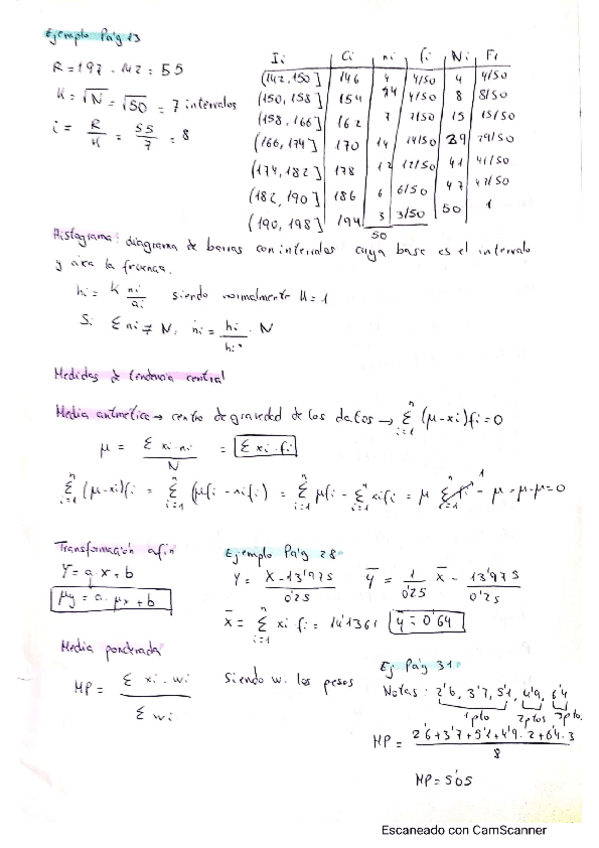 Ejemplo Pág 13
R = 197 - 142 = 55
K = √N = √50 = 7 intervalos
i = R/K = 55/7 = 8
Ii Ci ni fi Ni Fi
(142, 150] 146 4 4/50 4 4/50
(150, 158] 154 4 4/50 8 8/50
(158, 166] 162 7 7/50 15 15/50
(166, 174] 170 14 14/50 29 29/50
(174, 182] 178 12 12/50 41 41/50
(182, 190] 186 6 6/50 47 47/50
(190, 198] 194 3 3/50 50 1
50
Histograma: diagrama de barras con intervalos cuya base es el intervalo
y área la
hi = K ni/ai siendo normalmente K = 1
Si Σni ≠ N, ni = hi/hi · N
Medidas de tendencia central
Media aritmética → centro de gravedad de los datos → Σ(μ-xi)fi = 0
μ = Σxi·ni/N = Σxi·fi
Σ(μ-xi)fi = Σ(μfi - xifi) = Σμfi - Σxifi = μΣfi - μ = μ-μ = 0
Transformación afín
Y = a·x + b
μy = a·μx + b
Ejemplo Pág 28
Y = X-13'975/0'25 ȳ = 1/0'25 x̄ - 13'975/0'25
x̄ = Σxi fi = 14'1361 ȳ = 0'64
Media ponderada
MP = Σxi·wi/Σwi Siendo wi los pesos
Ej Pág 31
Notas: 2'6, 3'7, 5'1, 4'9, 6'4
1pto 2ptos 3pto
MP = 2'6+3'7+5'1+4'9·2+6'4·3/8
MP = 5'05
Escaneado con CamScanner